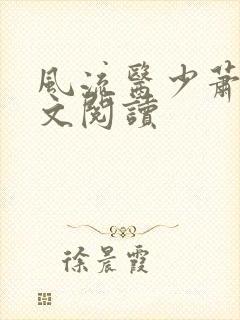 風流醫少蕭
文閱讀
徐晨霞